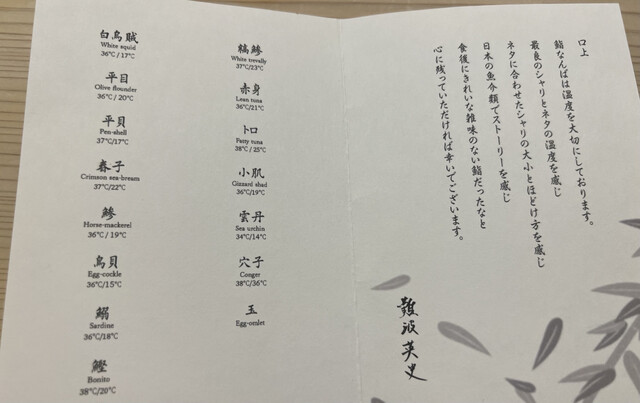 白烏賊
White squid
36℃ / 17℃
平目
Olive flounder
36℃ / 20℃
平貝
Pen-shell
37℃/17℃
春子
Crimson sea-bream
37℃/22℃
鯵
Horse-mackerel
36℃ / 19℃
鳥貝
Egg-cockle
36℃/15℃
鰯
Sardine
36℃/18℃
鰹
Bonito
38℃/20℃
縞鯵
White trevally
37℃/23℃
赤身
Lean tuna
36℃/21℃
トロ
Fatty tuna
38℃ / 25℃
小肌
Gizzard shad
36℃/19℃
雲丹
Sea urchin
34℃/14℃
穴子
Conger
38℃/36℃
玉
Egg-omlet
口上
鮨なんばは温度を大切にしております。
最良のシャリとネタの温度を感じ
ネタに合わせたシャリの大小とほどけ方を感じ
日本の魚介類でストーリーを感じ
食後にきれいな雑味のない鮨だったなと
心に残っていただければ幸いでございます。
難波英史